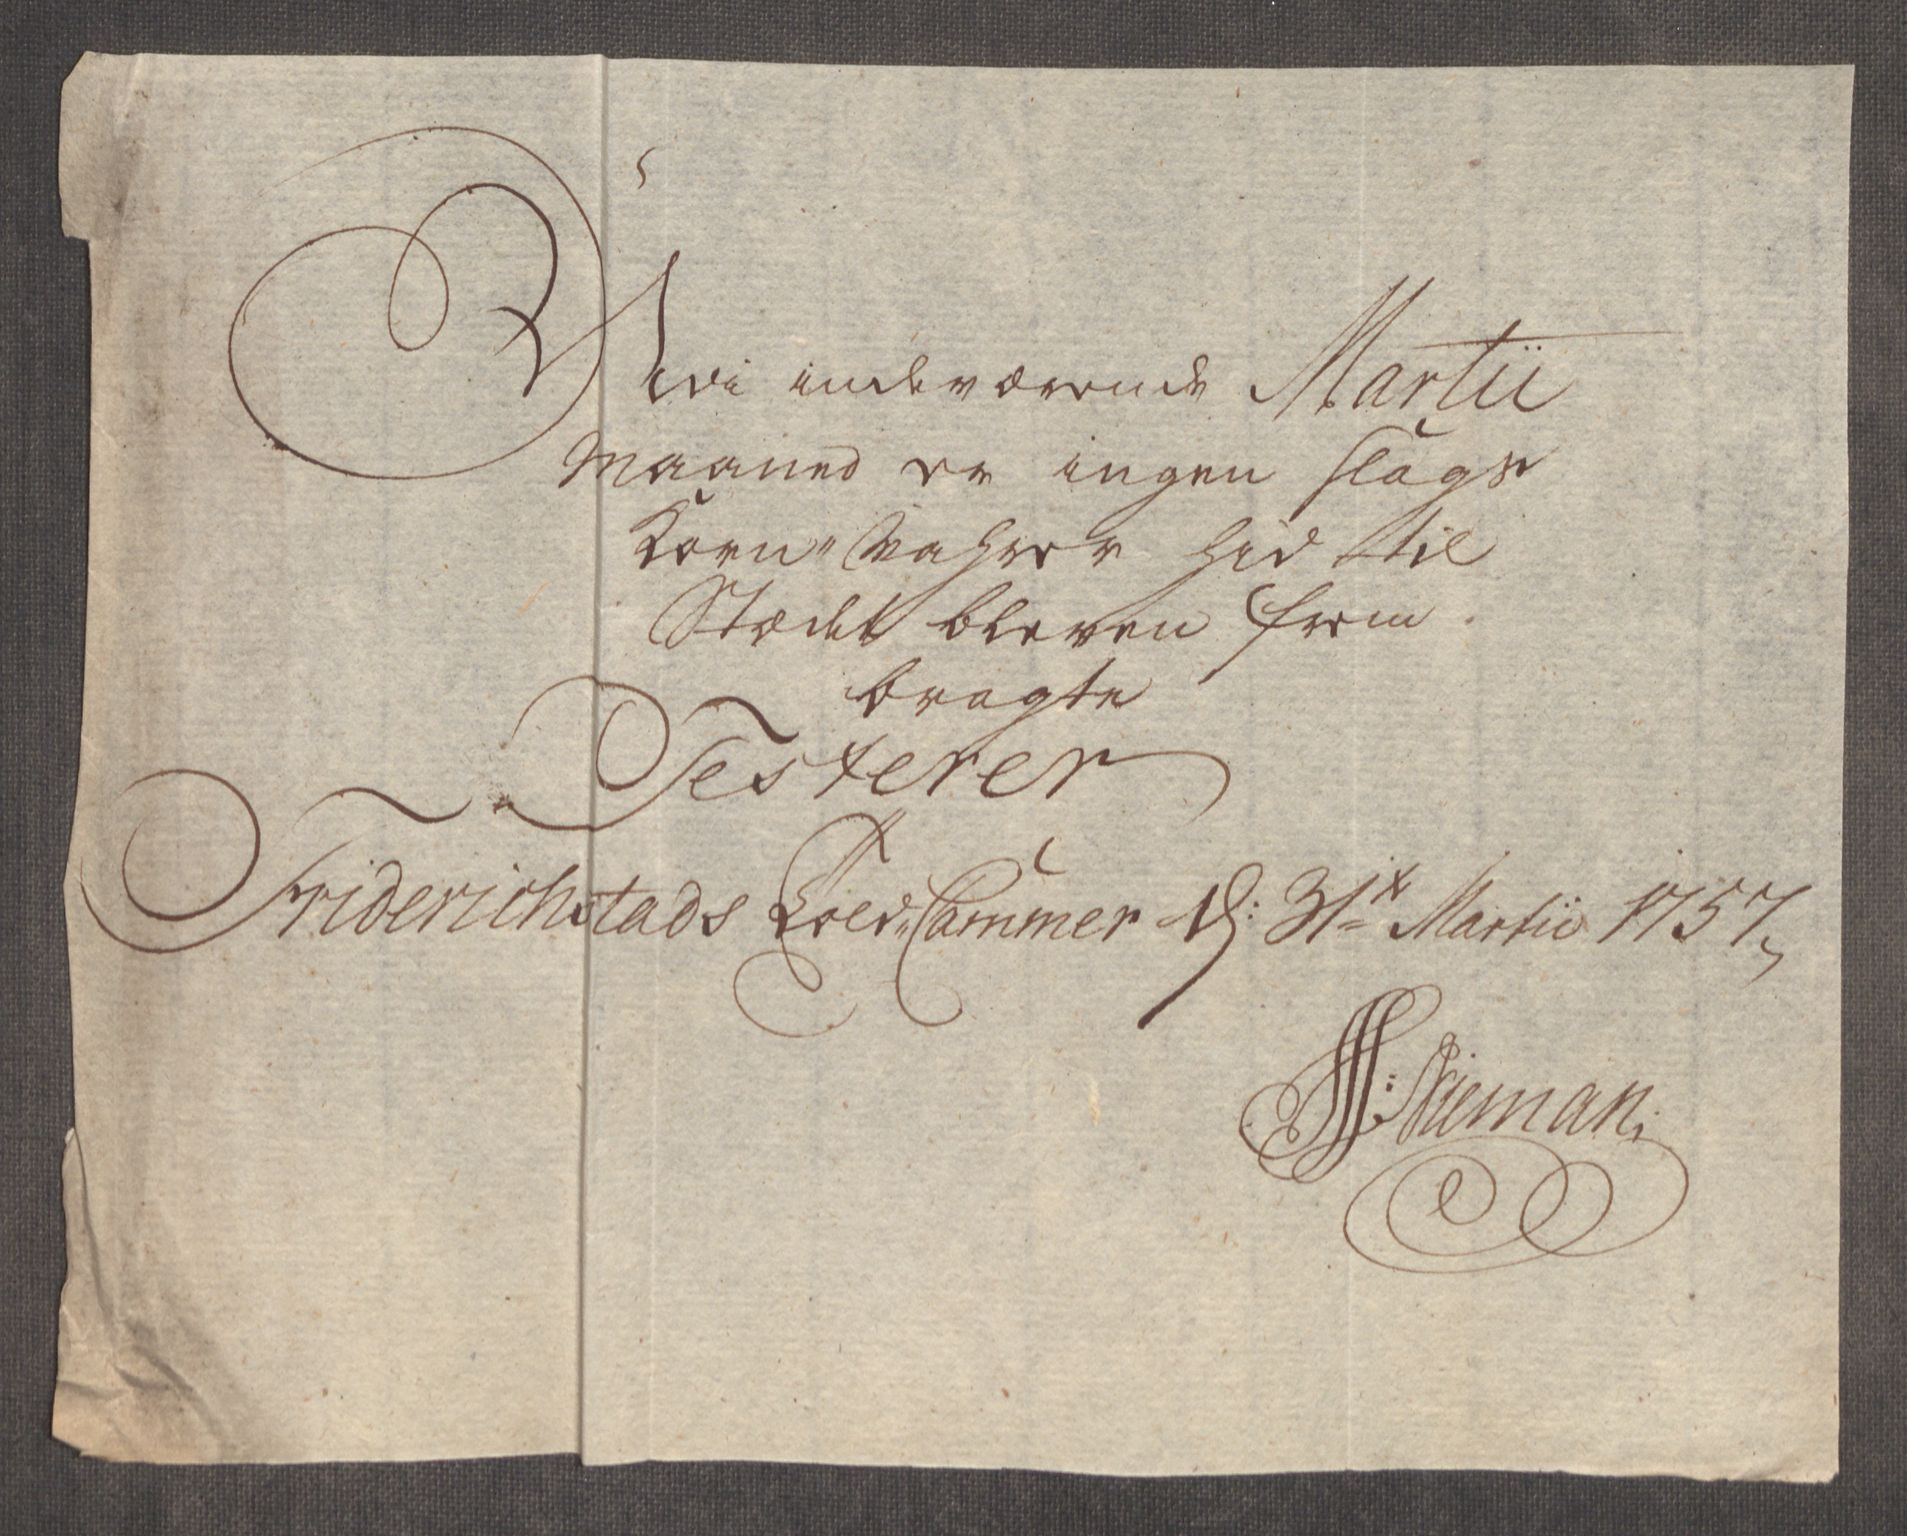 Udi indeværende Martii
Maaned er ingen slags
Korn-Wahrer hid til
Stædet bleven frem
bragte
Testerer
Friderichstads Told-Cammer d: 31te Martii 1757,
Nieman.